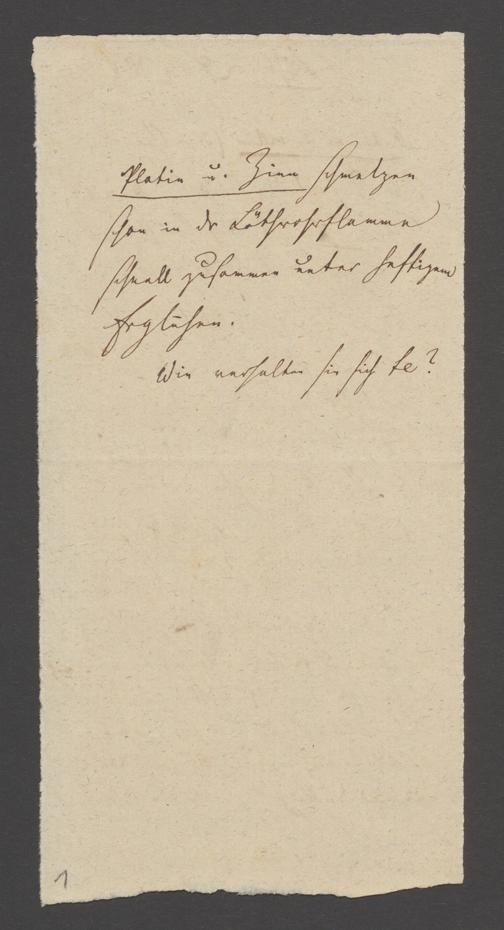 Platin u. Zinn schmelzen
schon in dr Löthrohrflamme
schnell zusammen unter heftigem
Erglühen.
Wie verhalten sie sich te?
1